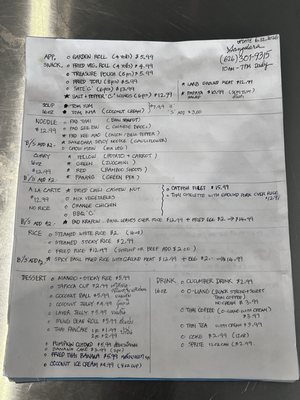 APP, o GARDEN ROLL (4 rolls) $5.99
SNACK, o FRIED VEG. ROLL (4 rolls) $4.99
o TREASURE POUCH (6 pcs) $5.99
o FRIED TOFU (8 pcs) $5.99
o SATE "C" (6 pcs) $13.99
★ SALT + PEPPER "C" WINGS (6 pcs) $12.99
(626) 309-9315
10am - 9pm Daily
★ LARB GROUND MEAT $12.99
★ PAPAYA $10.99
SALAD
SOUP o TOM YUM
16oz o TOM KHA (COCONUT CREAM)
NOODLE o PAD THAI
$12.99 o PAD SEE EW (CHINESE BROCC)
★ PAD KEE MAO (ONION/BELL PEPPER)
B/S ADD $2. ★ BANGKOK SPICY NOODLE
o CHOW MEIN (MIX VEG)
CURRY ★ YELLOW (POTATO + CARROT)
16oz ★ GREEN (ZUCCHINI)
$12.99 ★ RED (BAMBOO SHOOTS)
B/S ADD $2 ★ PANANG (GREEN PEA)
A LA CARTE ★ SPICY CHILI CASHEW NUT
$12.99 o MIX VEGETABLES
NO RICE o ORANGE CHICKEN
o BBQ "C"
B/S ADD $2. ★ PAD KRAPOW
o CATFISH FILLET $15.99
o THAI OMELETTE WITH GROUND PORK OVER RICE
$12.99
RICE o STEAMED WHITE RICE $2
o STEAMED STICKY RICE $2.99
o FRIED RICE $12.99 (SHRIMP OR BEEF ADD $2.00)
B/S ADD $2 ★ SPICY BASIL FRIED RICE WITH GROUND MEAT $12.99 + EGG $2.- → $14.99
DESSERT o MANGO + STICKY RICE $9.99
o TAPIOCA CUP $2.99
o COCONUT BALL $5.99
o COCONUT JELLY $4.99
o LAYER JELLY $5.99
o MUNG BEAN ROLL $5.99
o THAI PANCAKE
o PUMPKIN CUSTARD $5.99
o BANANA CAKE $3.99
o FRIED THAI BANANA $5.99
o COCONUT ICE CREAM $4.99
DRINK o CUCUMBER DRINK $2.99
16oz o O-LIANG (BLACK STRONG + SWEET
THAI COFFEE)
NO CREAM $3.99
o THAI COFFEE (O-LIANG WITH CREAM)
$3.99
o THAI TEA WITH CREAM $3.99
o COKE $2.99 (12oz)
o SPRITE 12oz CAN $2.99